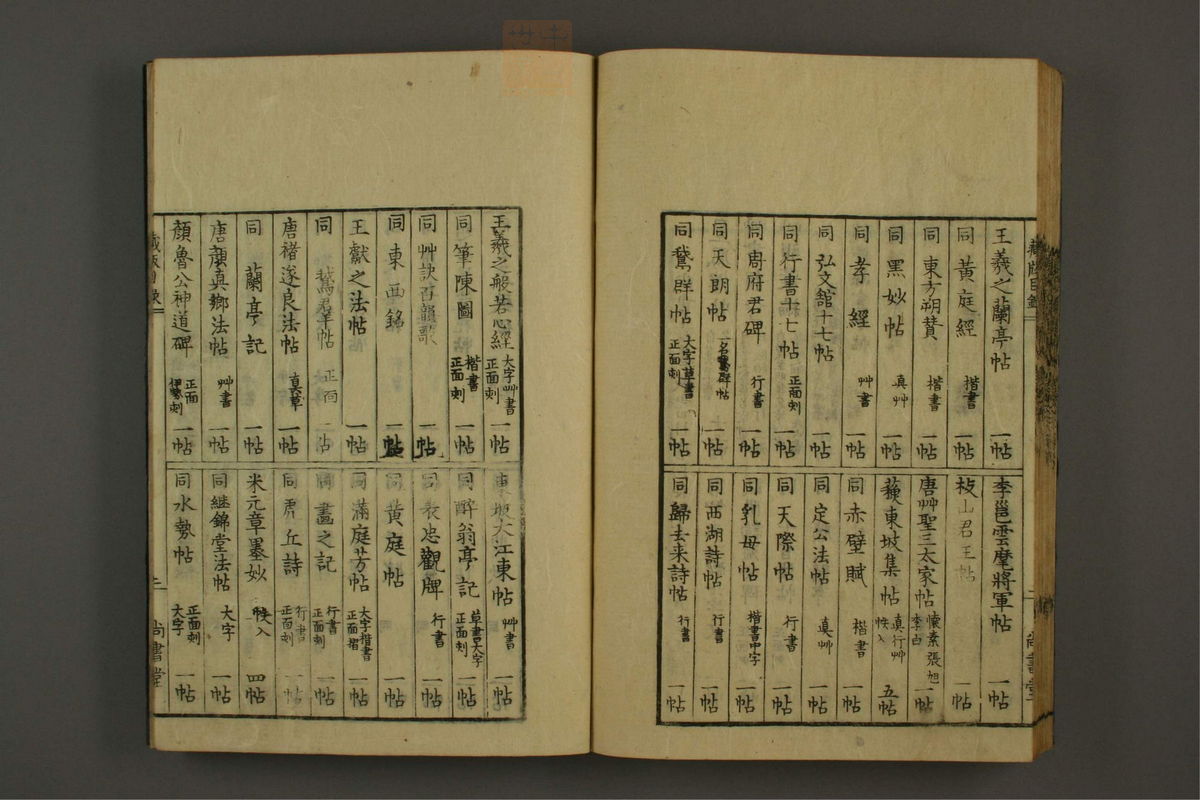 藏版目録
王羲之蘭亭帖 一帖
同 黄庭經 楷書 一帖
同 東方朔賛 楷書 一帖
同 黑妙帖 真艸 一帖
同 孝經 艸書 一帖
同 弘文舘十七帖 一帖
同 行書十七帖 正面刺 一帖
同 周府君碑 行書 一帖
同 天朗帖 一名鵞群帖 一帖
同 鵞群帖 大字草書 正面刺 一帖
李邕雲麾將軍帖 一帖
山君王帖 一帖
唐艸聖三太家帖 懐素張旭 李白 一帖
蘓東坡集帖 真行艸 帙入 五帖
同 赤壁賦 楷書 一帖
同 定公法帖 真艸 一帖
同 天際帖 行書 一帖
同 乳母帖 楷書中字 一帖
同 西湖詩帖 行書 一帖
同 歸去来詩帖 行書 一帖
尚書堂
王羲之般若心經 大字艸書 正面刺 一帖
同 筆陳圖 楷書 正面刺 一帖
同 艸訣百韻歌 一帖
同 東西銘 一帖
王獻之法帖 一帖
同 鵞羣帖 正面 一帖
唐褚遂良法帖 真草 一帖
同 蘭亭記 一帖
唐顔真郷法帖 艸書 一帖
顔魯公神道碑 正面 伊勢刺 一帖
東坡大江東帖 艸書 一帖
同 醉翁亭記 草書大字 正面刺 一帖
同 表忠觀碑 行書 一帖
同 黄庭帖 一帖
同 滿庭芳帖 大字楷書 正面摺 一帖
同 畫之記 行書 正面刺 一帖
同 虎丘詩 行書 正面刺 一帖
米元章墨妙 帙入 四帖
同 継錦堂法帖 大字 一帖
同 水勢帖 正面刺 大字 一帖
二
尚書堂